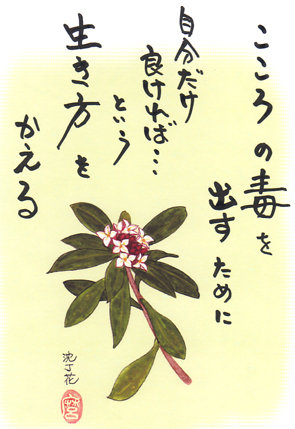 こころの毒を
出すために
自分だけ
良ければ…
という
生き方を
かえる
沈丁花